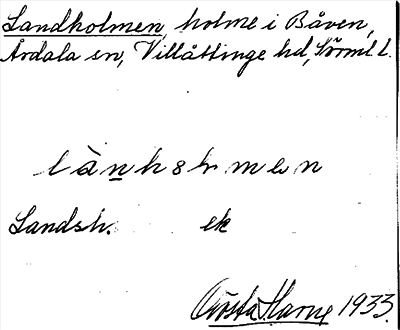 Landholmen, holme i Båven,
Årdala sn, Villåttinge hd, Sörml. l.
Landsh. ek
Gösta Harne 1933.